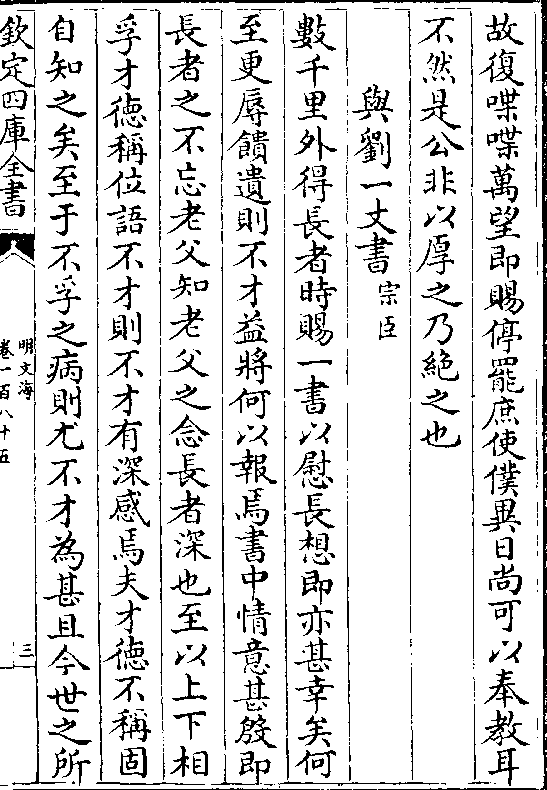 故復喋喋萬望即賜停罷庶使僕異日尚可以奉教耳
不然是公非以厚之乃絶之也
與劉一丈書 宗臣
數千里外得長者時賜一書以慰長想即亦甚幸矣何
至更辱饋遺則不才益將何以報焉書中情意甚殷即
長者之不忘老父知老父之念長者深也至以上下相
孚才徳稱位語不才則不才有深感焉夫才徳不稱固
自知之矣至于不孚之病則尤不才為甚且今世之所
欽定四庫全書
明文海
卷一百八十五
三